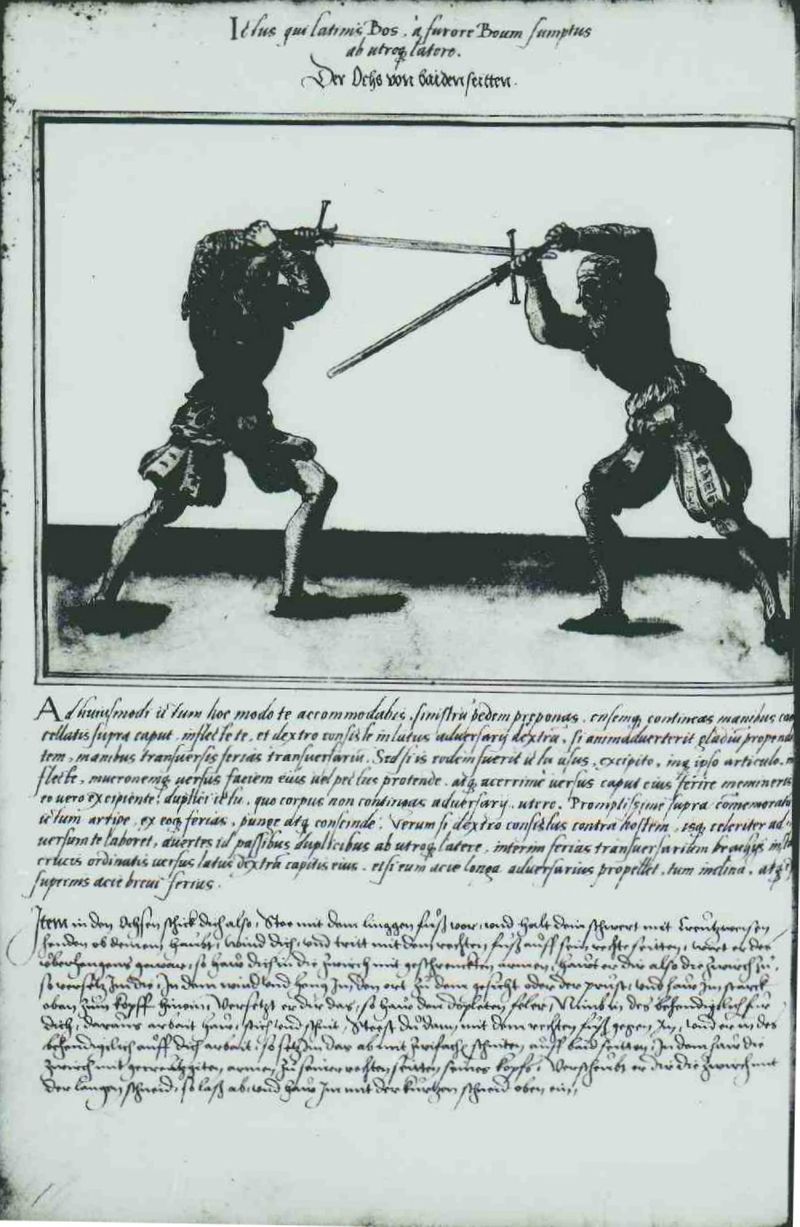 Ictus qui latinis Bos, à furore Boum sumptus
ab utroq, latere.
Der Ochs von baiden seitten.
Ad huiusmodi ictum hoc modo te accommodabis, sinistrū pedem preponas, ensemq, contineas manibus can
cellatis supra caput, inflecte te, et dextro consiste in latus adversarij dextrū, si animadverterit gladiū propenden
tem, manibus transversis ferias transversariū. Sed si is eodem fuerit ictu usus, excipito, inq, ipso articulo, in
flecte, mucronemq, versus faciem eius vel pectus protende, atq, acerrime versus caput eius ferire memineris
eo vero excipiente, duplici ictu, quo corpus non contingas adversarij, utere. Promptissime supra comemoratū
ictum arripe, ex eoq, ferias, punge atq, conscinde. Verum si dextro consistas contra hostem, isq, celeriter ad
versum te laboret, avertes id passibus duplicibus ab utroq, latere, interim ferias transversarium brachijs instar
crucis ordinatis versus latus dextrū capitis eius, et si eum acie longa adversarius propellet, tum inclina, atq,
supernis acie brevi ferius.
Item in den Ochsen schick dich also, Stee mit dem linggen fuoß vor, vnd halt dein schwert mit Creutzweisen
henden ob deinem haubt, wind dich, vnd tritt mit dem rechten fuoß auff sein rechte seitten, wirt er des
vberhangens gewar, so haw durch in die zwirch mit geschrenckten armen, hawt er dir also die zwirch zuo,
so versetz Im die, In dem wind vnd heng Im den ort zuo dem gesicht oder der prust, vnd haw Im starck
oben zum kopff hinein, Versetzt er dir das, so haw den doplaten feler, Nimb in des behendigclich für
dich, daraus arbait haw, stich vnd schnit, Steest du dann mit dem rechten fuoß gegen Im, vnd er in des
behendigclich auff dich arbait, so setz Im das ab mit zwifach schriten auff baid seitten, In dem haw die
zwirch mit gecreutzgiten armen, zuo seiner rechten seitten seines kopfs, Verscheubt er dir die zwirch mit
der langen schneid, so laß ab, vnd haw Im mit der kurtzen schneid oben ein,